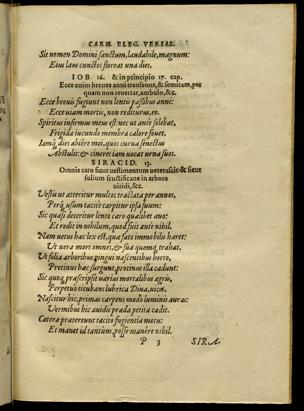 CARM. ELEG. VERSAE.
Sit nomen Domini sanctum, laudabile, magnum:
Eius laus cunctos floreat una dies.
IOB 16. & in principio 17. cap.
Ecce enim breues anni transeunt, & semitam, per
quam non reuertar, ambulo, &c.
Ecce breuis fugiunt non lentis passibus anni:
Ecce uiam mortis, non rediturus, eo.
Spiritus infirmus meus est nec ut ante solebat,
Frigida iucundo membra calore fouet.
Iamq́; dies abiere mei, quos curua senectus
Abstulit: & cineres iam uocat urna suos.
SIRACID. 13.
Omnis caro sicut uestimentum ueterascit & sicut
folium fructificans in arbore
uiridi, &c.
Vestis ut atteritur multos tractata per annos,
Perq́; usum tacite carpitur ipsa suum:
Sic quasi deteritur lento caro qualibet auo:
Et redit in nihilum, quod fuit ante nihil.
Nam uetus hac lex est, qua fato immobilis haret:
Ut uera mors omnes, & sua quemq́; trahat.
Ut folia arboribus, pingui nascentibus horto,
Protinus hac surgunt, protinus illa cadunt:
Sic quoq́; prascripsit uarias mortalibus agris,
Perpetuo titubans lubrica Diua, uices.
Nascitur hic, primas carpens modo luminis auras:
Vermibus hic auidis prada petita cadit.
Catera pratereunt tacito fugientia motu:
Et manet id tantum, posse manere nihil.
P 3 SIRA